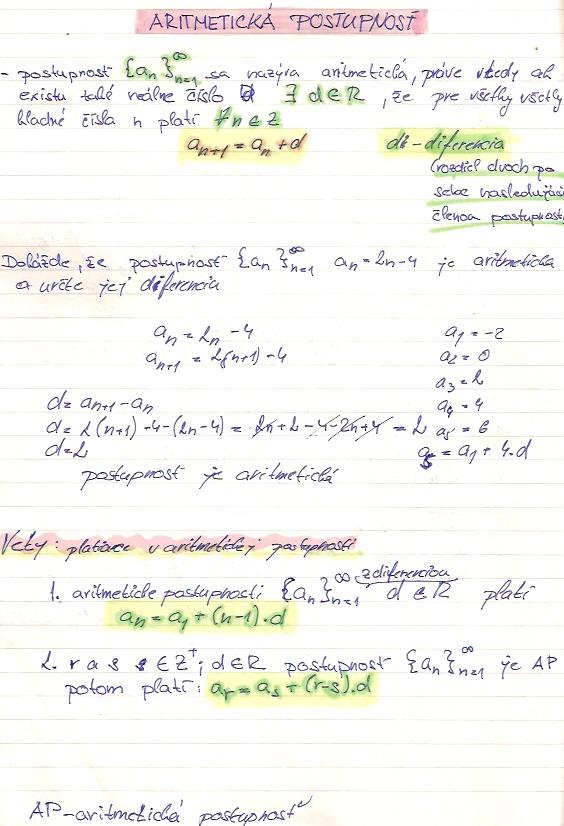 ARITMETICKÁ POSTUPNOSŤ
- postupnosť {an}∞n=1 sa nazýva aritmetická, práve vtedy ak
existu také reálne číslo ∃ d∈R, že pre všetky všetky
kladné čísla n platí ∀n∈Z
an+1 = an + d
di - diferencia
(rozdiel dvoch po
sebe nasledujúci
členov postupnosti
Dokážde, že postupnosť {an}∞n=1 an = 2n-4 je aritmetická
a určte jej diferencia
an = 2n - 4
an+1 = 2(n+1) - 4
a1 = -2
a2 = 0
a3 = 2
a4 = 4
a5 = 6
a5 = a1 + 4.d
d = an+1 - an
d = 2(n+1) - 4 - (2n-4) = 2n + 2 - 4 - 2n + 4 = 2
d = 2
postupnosť je aritmetická
Vety: platiace v aritmetickej postupnosti
1. aritmeticke postupnosti {an}∞n=1 z diferenciou d∈R platí
an = a1 + (n-1).d
2. r a s s∈Z+; d∈R postupnosť {an}∞n=1 je AP
potom platí: ar = as + (r-s).d
AP - aritmetická postupnosť